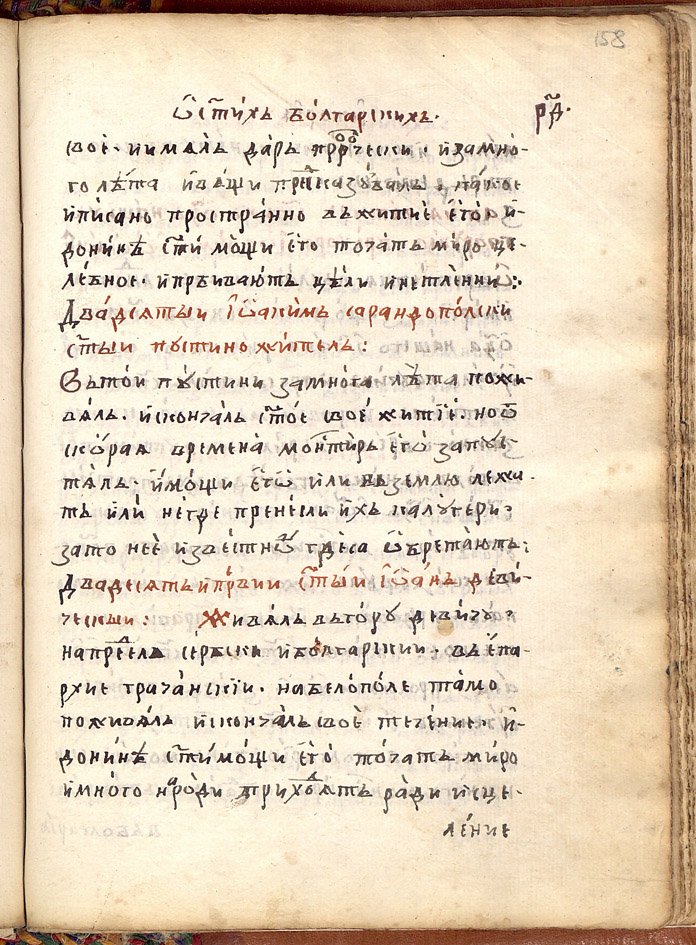 158
Ѡ ст҃ихъ болгарскихъ. рⷩ҇д.
свое. иималъ даръ прⷪ҇рⷪ҇чески. и замно-
го лѣта и вещи прⷣеказувалъ. како е
и писано пространно въ житиѐ его. и-
до нинѣ ст҃и мощи его точатъ миро це-
лебное. и прѣбиваютъ цѣли и нетленни:
Двадесѧтыи Іѡакимъ сарандополски
ст҃ыи пустиножитель:
Ѳ҆ тои пустини замного лѣта пожи-
вѧлъ. и скончалъ ст҃ое свое житїе. но ѿ
скораѧ времена монⷭ҇тирь его запус-
тѧлъ. и мощи его или въ землю лежа-
тъ или негде пренесли ихъ калугери.
зато неѐ известно гдѐ са ѡбретаютъ:
Двадесѧтъ и прьвии ст҃ыи Іѡанъ деви-
чески: Живѧлъ въ гору девичу.
на преⷣелъ сербски и болгарскии. въ епа-
рхие грачански. на белополе тамо
поживѧлъ и скончалъ свое течение. и-
до нинѣ ст҃и мощи его точатъ миро
и много народи прихоⷣѧтъ ради исце-
ление